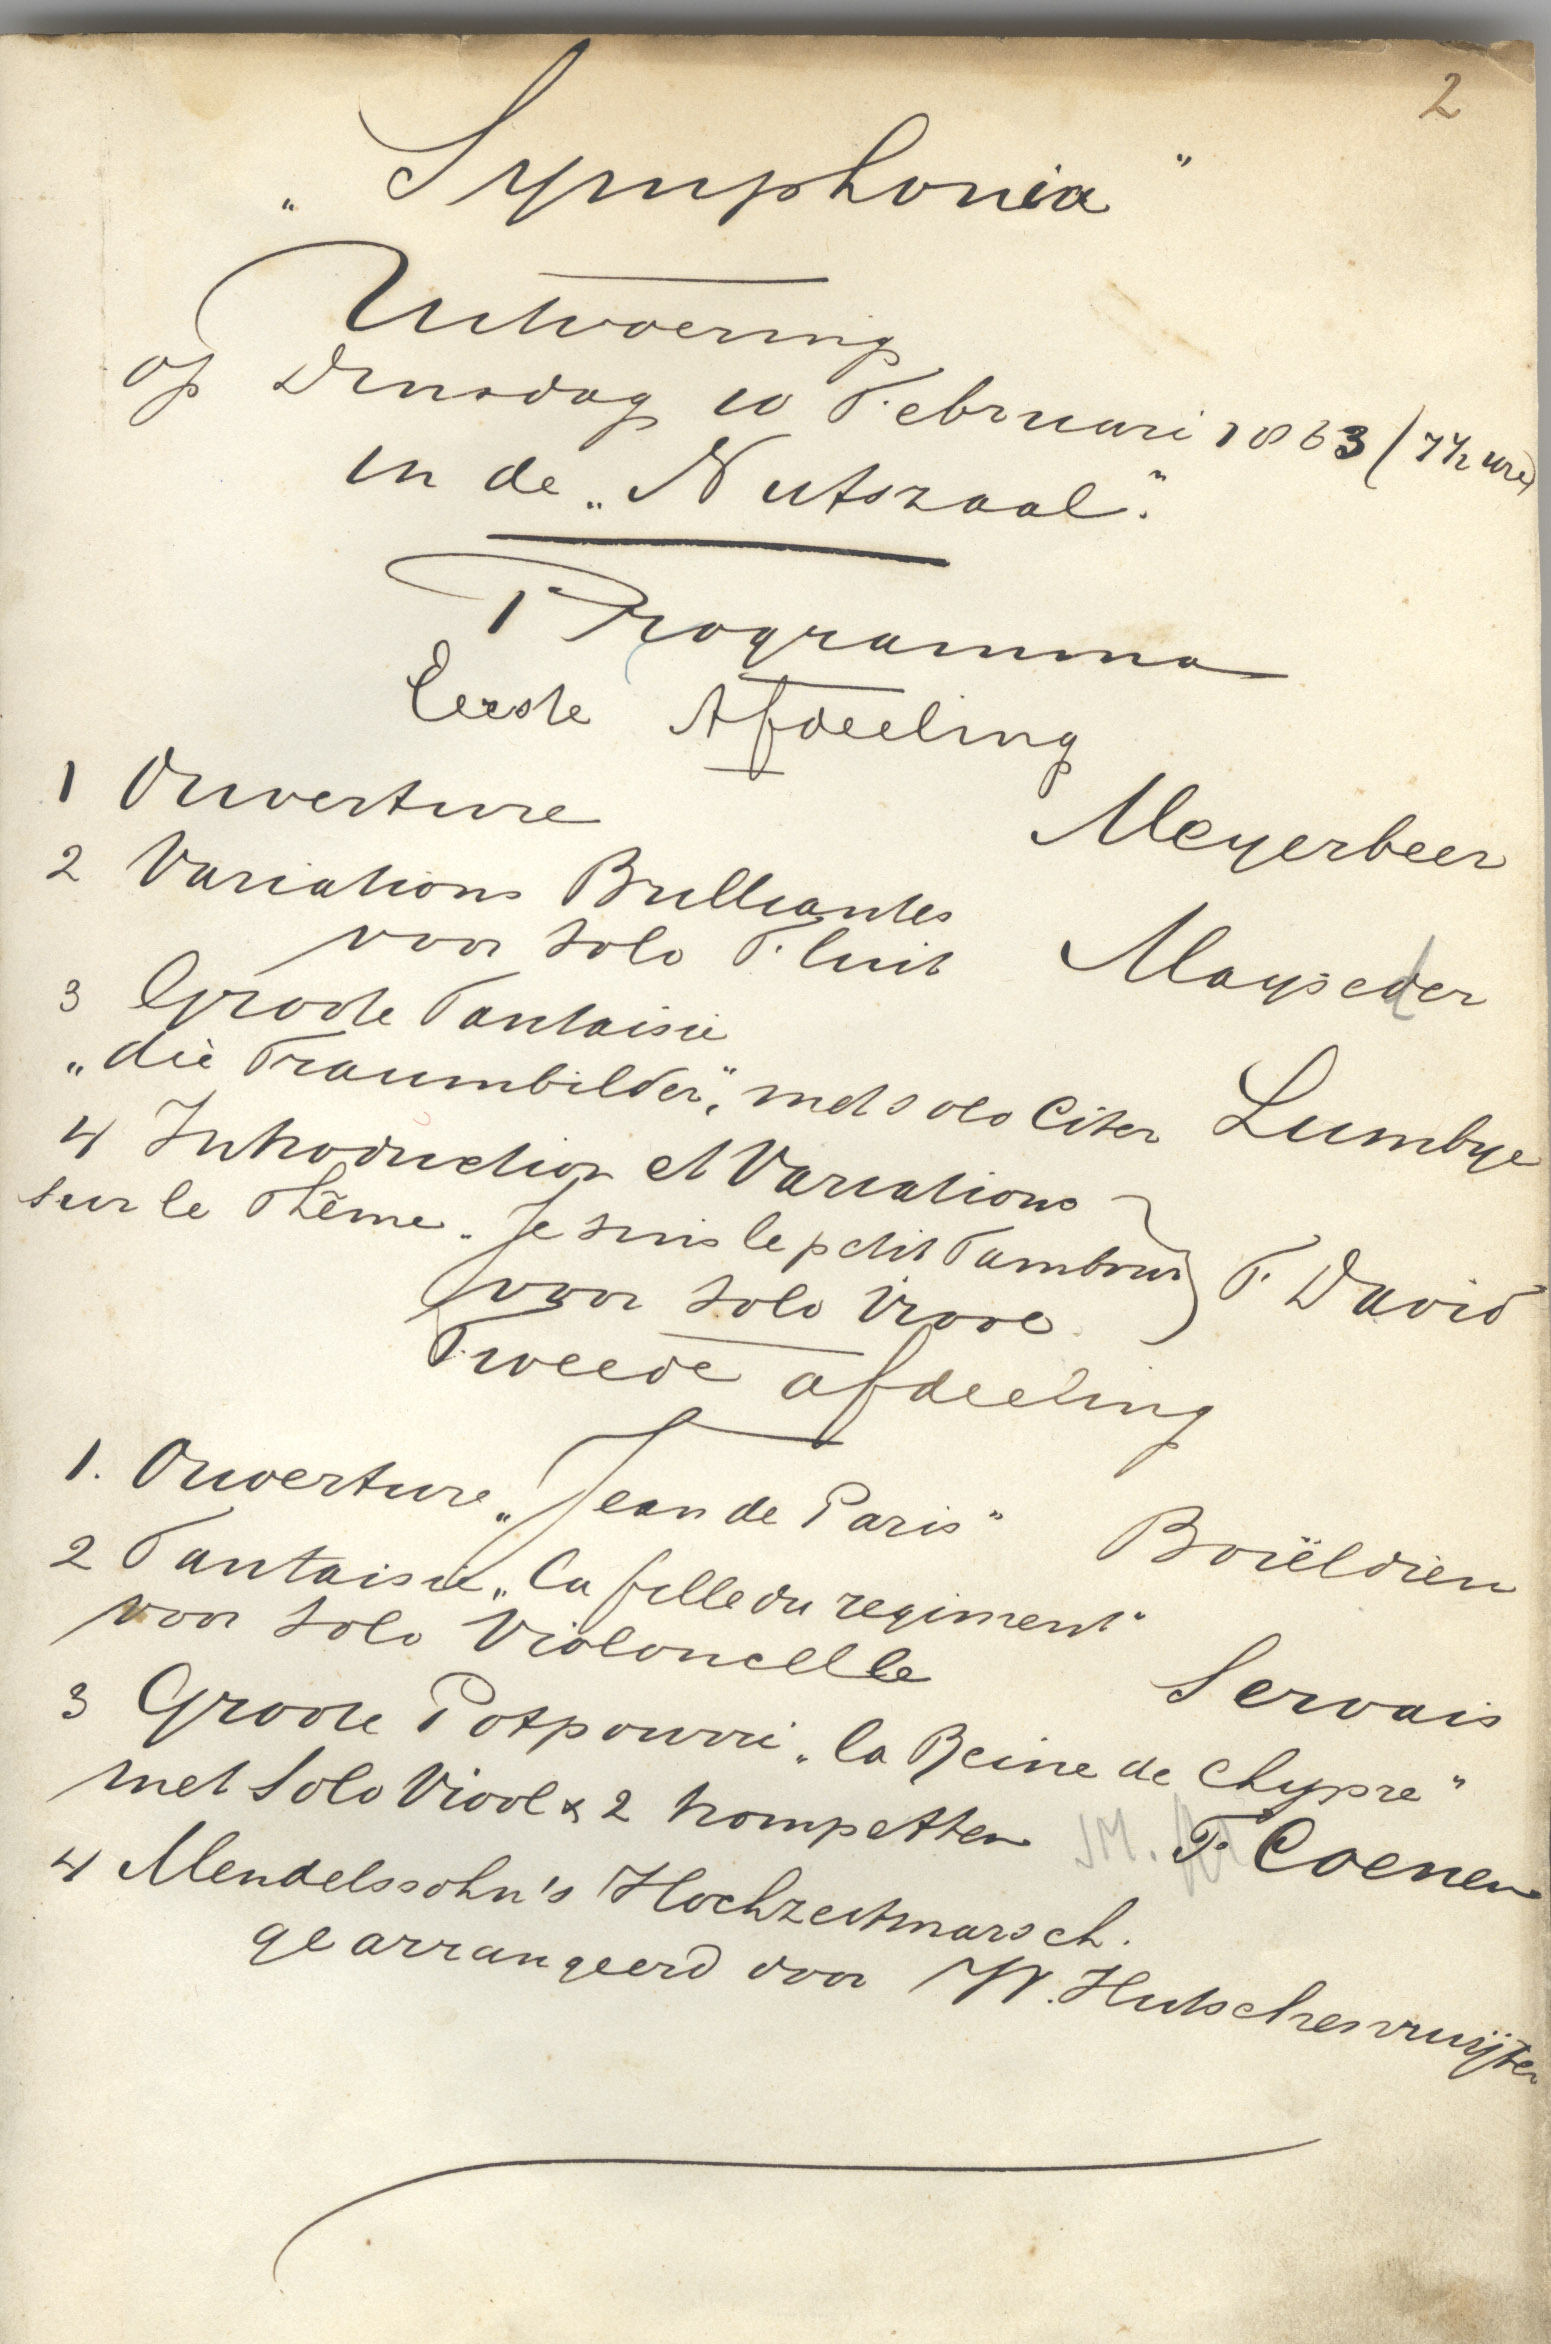 2
„Symphonia"
Uitvoering
op Dinsdag 10 Februari 1863 (7½ ure)
in de „Nutszaal".
Programma
Eerste Afdeeling
1 Ouverture Meyerbeer
2 Variations Brilliantes
voor solo Fluit Mayseder
3 Groote Fantaisie
„die Traumbilder", met solo Citer Lumbye
4 Introduction et Variations
sur le Thême „Je suis le petit Tambour
voor solo Viool F. David
Tweede afdeeling
1. Ouverture „Jean de Paris" Boiëldieu
2 Fantaisie „la fille du regiment"
voor solo Violoncelle Servais
3 Groote Potpourri „la Reine de Chypre"
met Solo Viool & 2 trompetten F. Coenen
4 Mendelssohn's Hochzeitmarsch.
gearrangeerd door W. Hutschenruijter